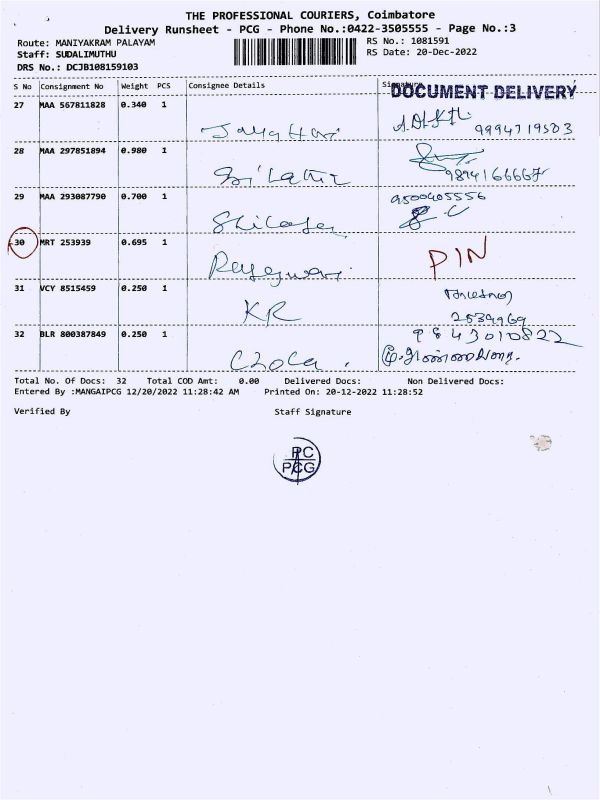 THE PROFESSIONAL COURIERS, Coimbatore
Delivery Runsheet - PCG - Phone No.:0422-3505555 - Page No.:3
Route: MANIYAKRAM PALAYAM RS No.: 1081591
Staff: SUDALIMUTHU RS Date: 20-Dec-2022
DRS No.: DCJB108159103
S No Consignment No Weight PCS Consignee Details Signature
DOCUMENT DELIVERY
27 MAA 567811828 0.340 1
9994719503
28 MAA 297851894 0.980 1
29 MAA 293087790 0.700 1 9500405556
30 MRT 253939 0.695 1 PIN
31 VCY 8515459 0.250 1
KR 2539969
32 BLR 800387849 0.250 1 9843010822
Chola.
Total No. Of Docs: 32 Total COD Amt: 0.00 Delivered Docs: Non Delivered Docs:
Entered By :MANGAIPCG 12/20/2022 11:28:42 AM Printed On: 20-12-2022 11:28:52
Verified By Staff Signature
PC
PCG